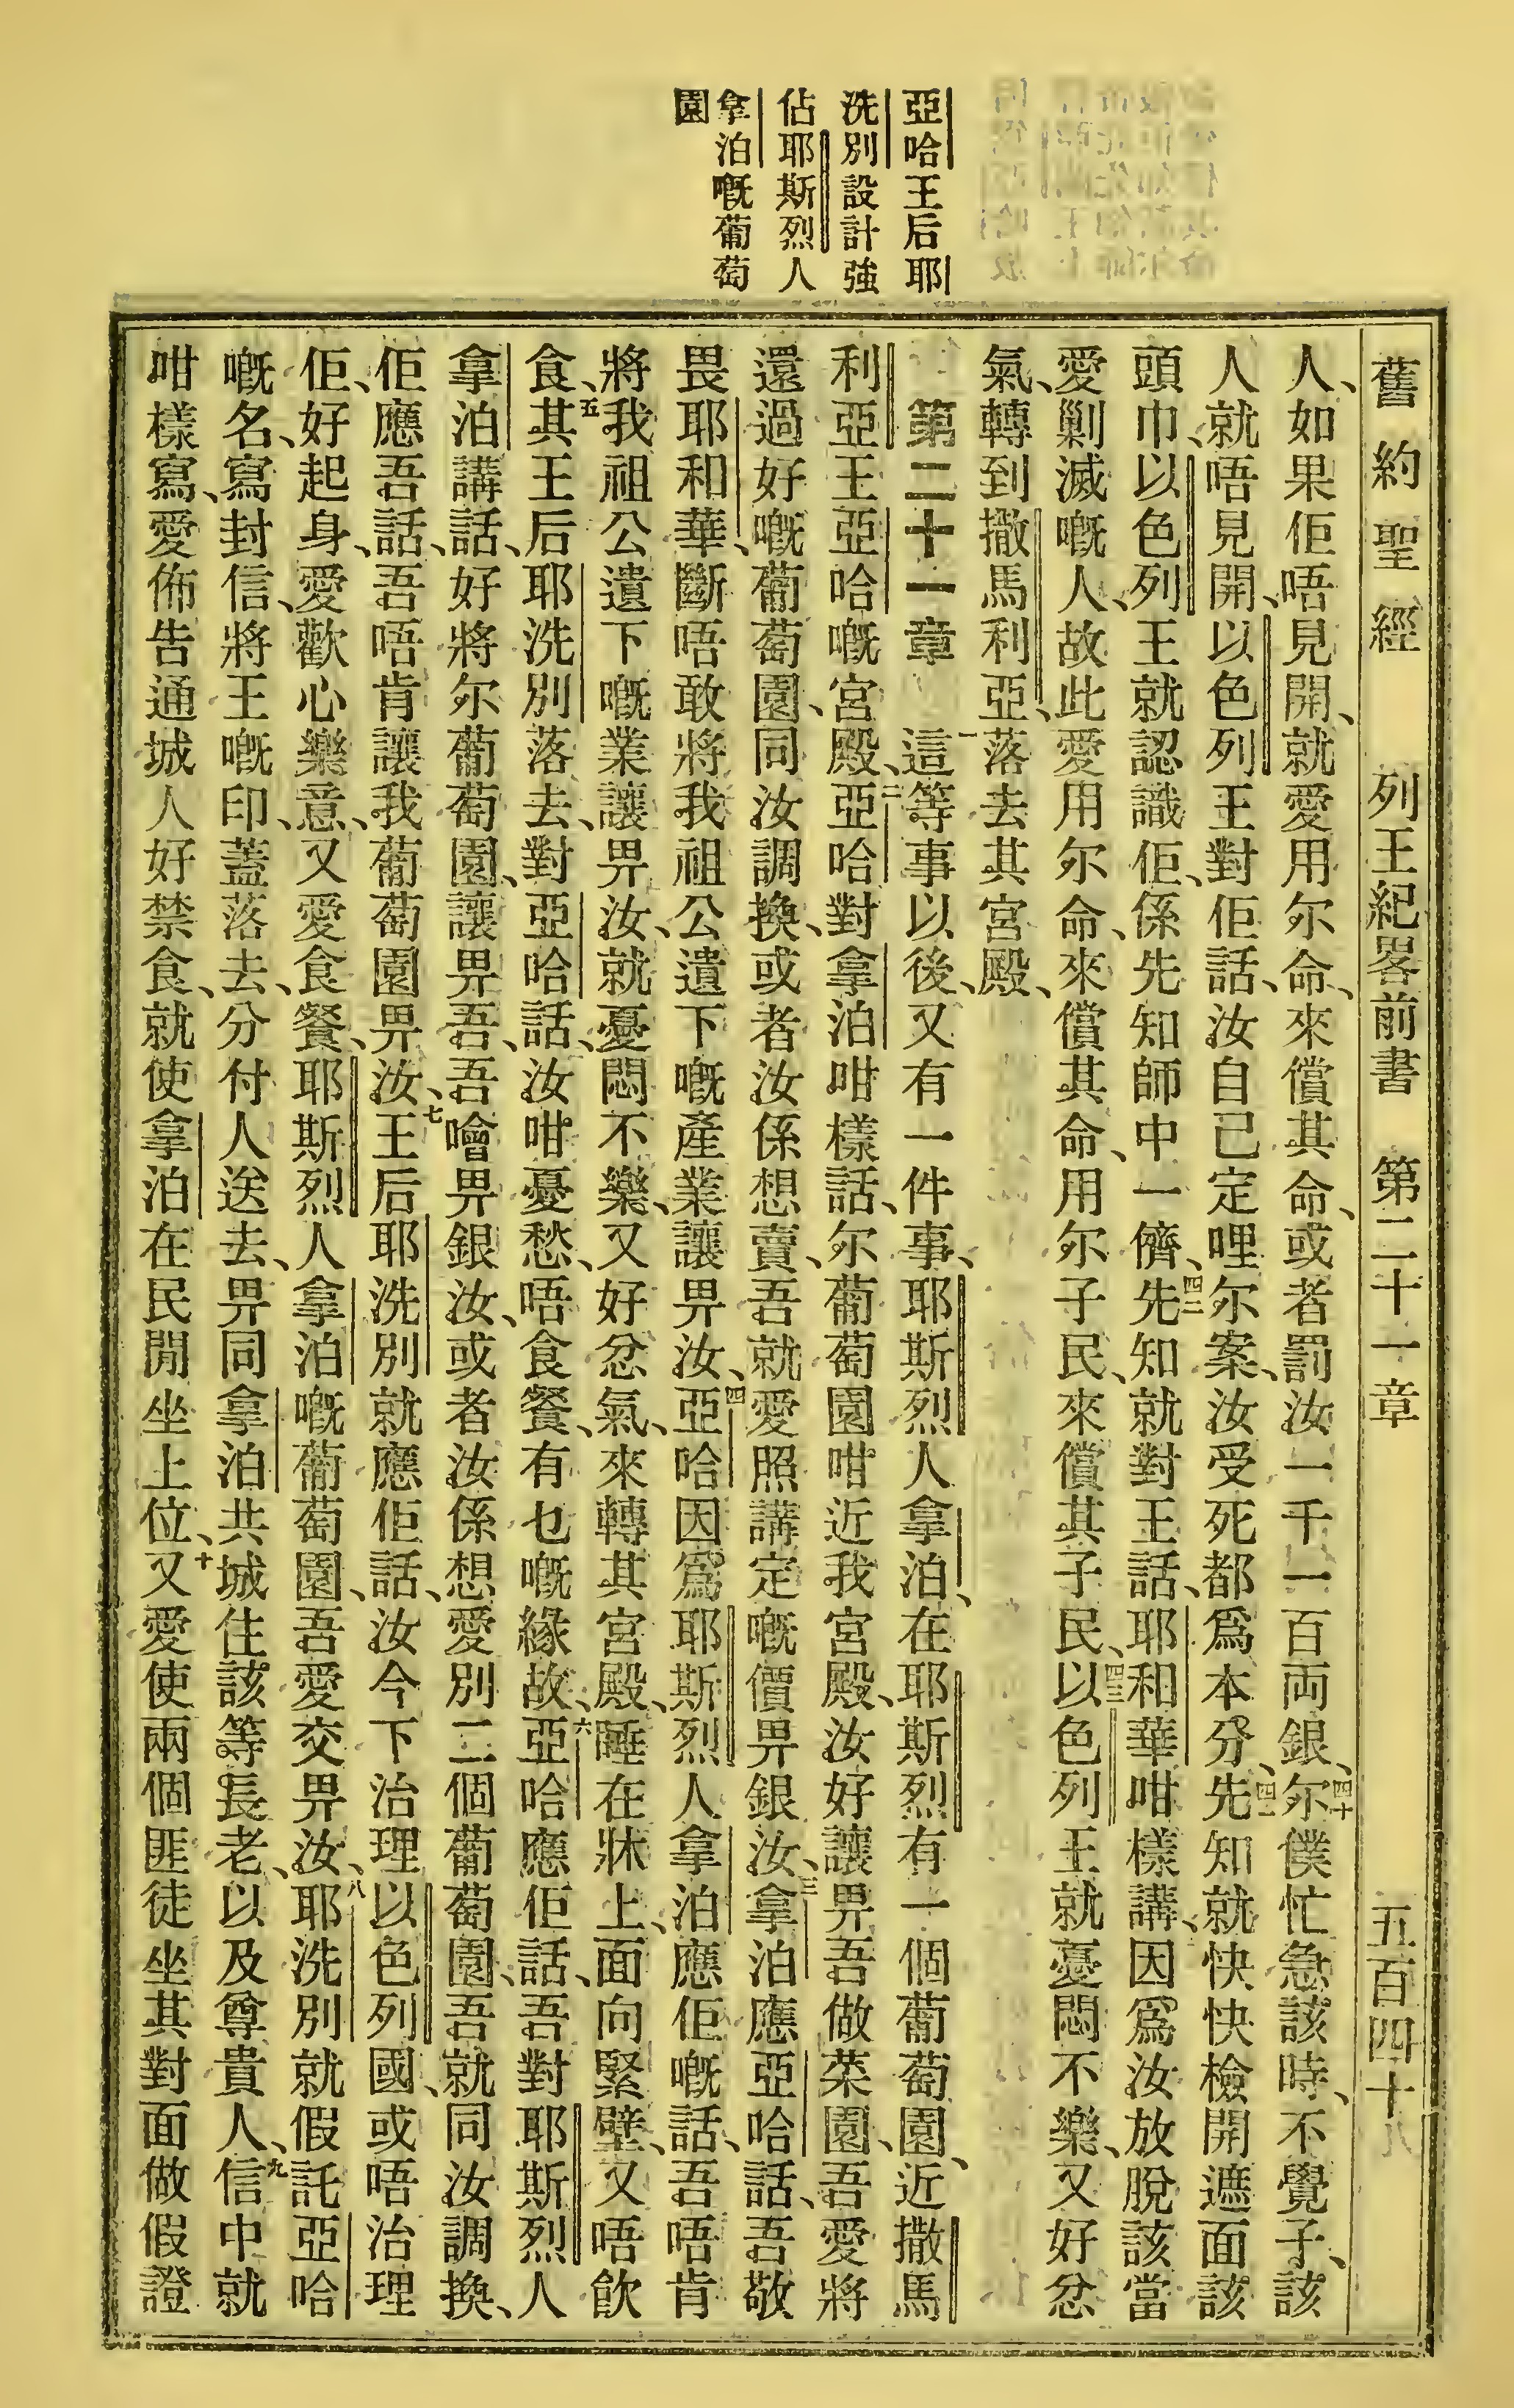 舊約聖經 列王紀畧前書 第二十一章 五百四十九
人、如果佢唔見開、就愛用尔命、來償其命、或者罰汝一千一百両銀、四十尔僕忙急該時、不覺子、該
人就唔見開、以色列王對佢話、汝自己定哩尔案、汝受死都爲本分、四一先知就快快檢開遮面該
頭巾、以色列王就認識佢、係先知師中一儕、四二先知就對王話、耶和華咁樣講、因爲汝放脫該當
愛剿滅嘅人、故此愛用尔命、來償其命、用尔子民、來償其子民、四三以色列王就憂悶不樂、又好忿
氣、轉到撒馬利亞、落去其宮殿、
第二十一章 一這等事以後、又有一件事、耶斯烈人拿泊、在耶斯烈有一個葡萄園、近撒馬
利亞王亞哈嘅宮殿、二亞哈對拿泊咁樣話、尔葡萄園咁近我宮殿、汝好讓畀吾做菜園、吾愛將
還過好嘅葡萄園、同汝調換、或者汝係想賣、吾就愛照講定嘅價畀銀汝、三拿泊應亞哈話、吾敬
畏耶和華、斷唔敢將我祖公遺下嘅產業讓畀汝、四亞哈因爲耶斯烈人拿泊應佢嘅話、吾唔肯
將我祖公遺下嘅業讓畀汝、就憂悶不樂、又好忿氣、來轉其宮殿、睡在牀上、面向緊壁、又唔飲
食、五其王后耶洗別落去、對亞哈話、汝咁憂愁、唔食餐、有乜嘅緣故、六亞哈應佢話、吾對耶斯烈人
拿泊講話、好將尔葡萄園、讓畀吾、吾噲畀銀汝、或者汝係想愛別二個葡萄園、吾就同汝調換、
佢應吾話、吾唔肯讓我葡萄園畀汝、七王后耶洗別就應佢話、汝今下治理以色列國、或唔治理
佢、好起身、愛歡心樂意、又愛食餐、耶斯烈人拿泊嘅葡萄園、吾愛交畀汝、八耶洗別就假託亞哈
嘅名、寫封信、將王嘅印、蓋落去、分付人送去、畀同拿泊共城住該等長老、以及尊貴人、九信中就
咁樣寫、愛佈告通城人好禁食、就使拿泊在民閒坐上位、十又愛使兩個匪徒坐其對面做假證
亞哈王后耶
洗別設計強
佔耶斯烈人
拿泊嘅葡萄
園